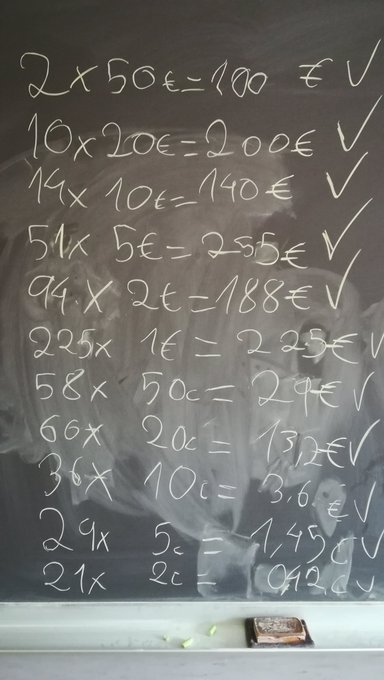 2 x 50€ = 100 € ✓
10 x 20€ = 200€ ✓
14 x 10€ = 140€ ✓
51 x 5€ = 255€ ✓
94 x 2€ = 188€ ✓
225 x 1€ = 225€ ✓
58 x 50c = 29€ ✓
66 x 20c = 13,2€ ✓
36 x 10c = 3,6€ ✓
29 x 5c = 1,45€ ✓
21 x 2c = 0,42€ ✓